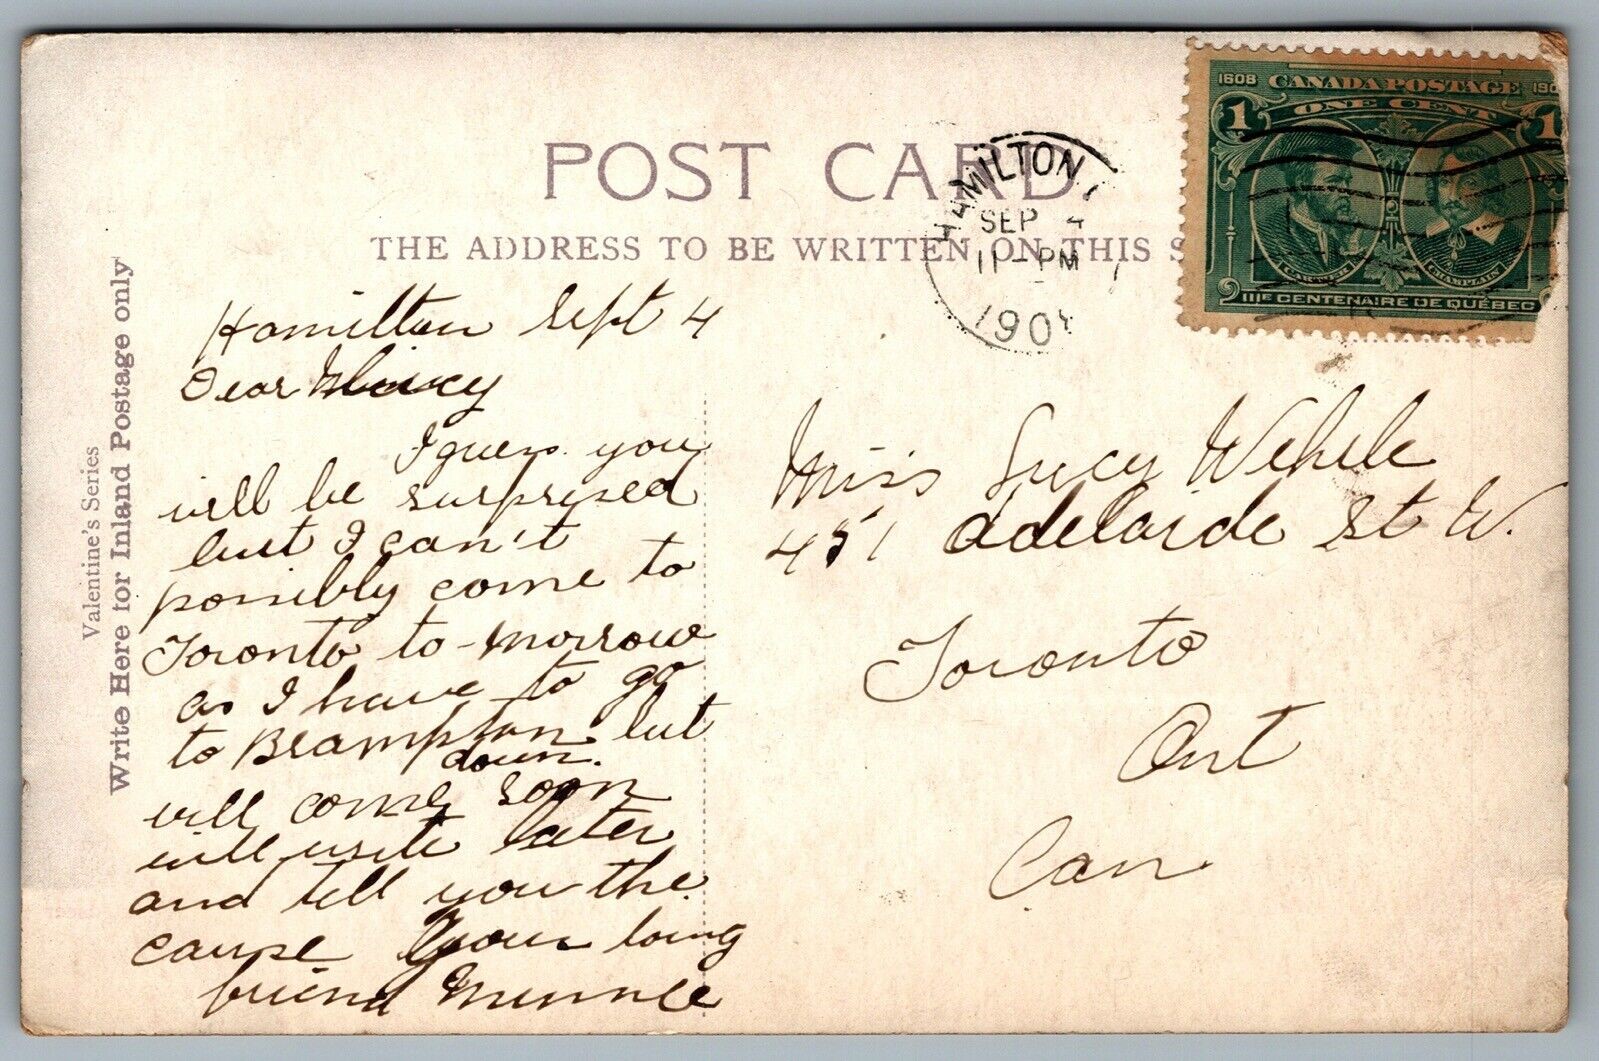 POST CARD
THE ADDRESS TO BE WRITTEN ON THIS S
Valentine's Series
Write Here for Inland Postage only
HAMILTON
SEP 4
11-PM
190
1608 CANADA POSTAGE 190
1 ONE CENT 1
CARTIER CHAMPLAIN
IIIe CENTENAIRE DE QUÉBEC
Hamilton Sept 4
Dear
I guess you
will be surprised
but I can't
possibly come to
Toronto to-morrow
as I have to go
to Brampton but
down.
will come soon
will write later
and tell you the
cause Your loving
friend Minnie
Miss Lucy Wehrle
451 Adelaide St W.
Toronto
Ont
Can